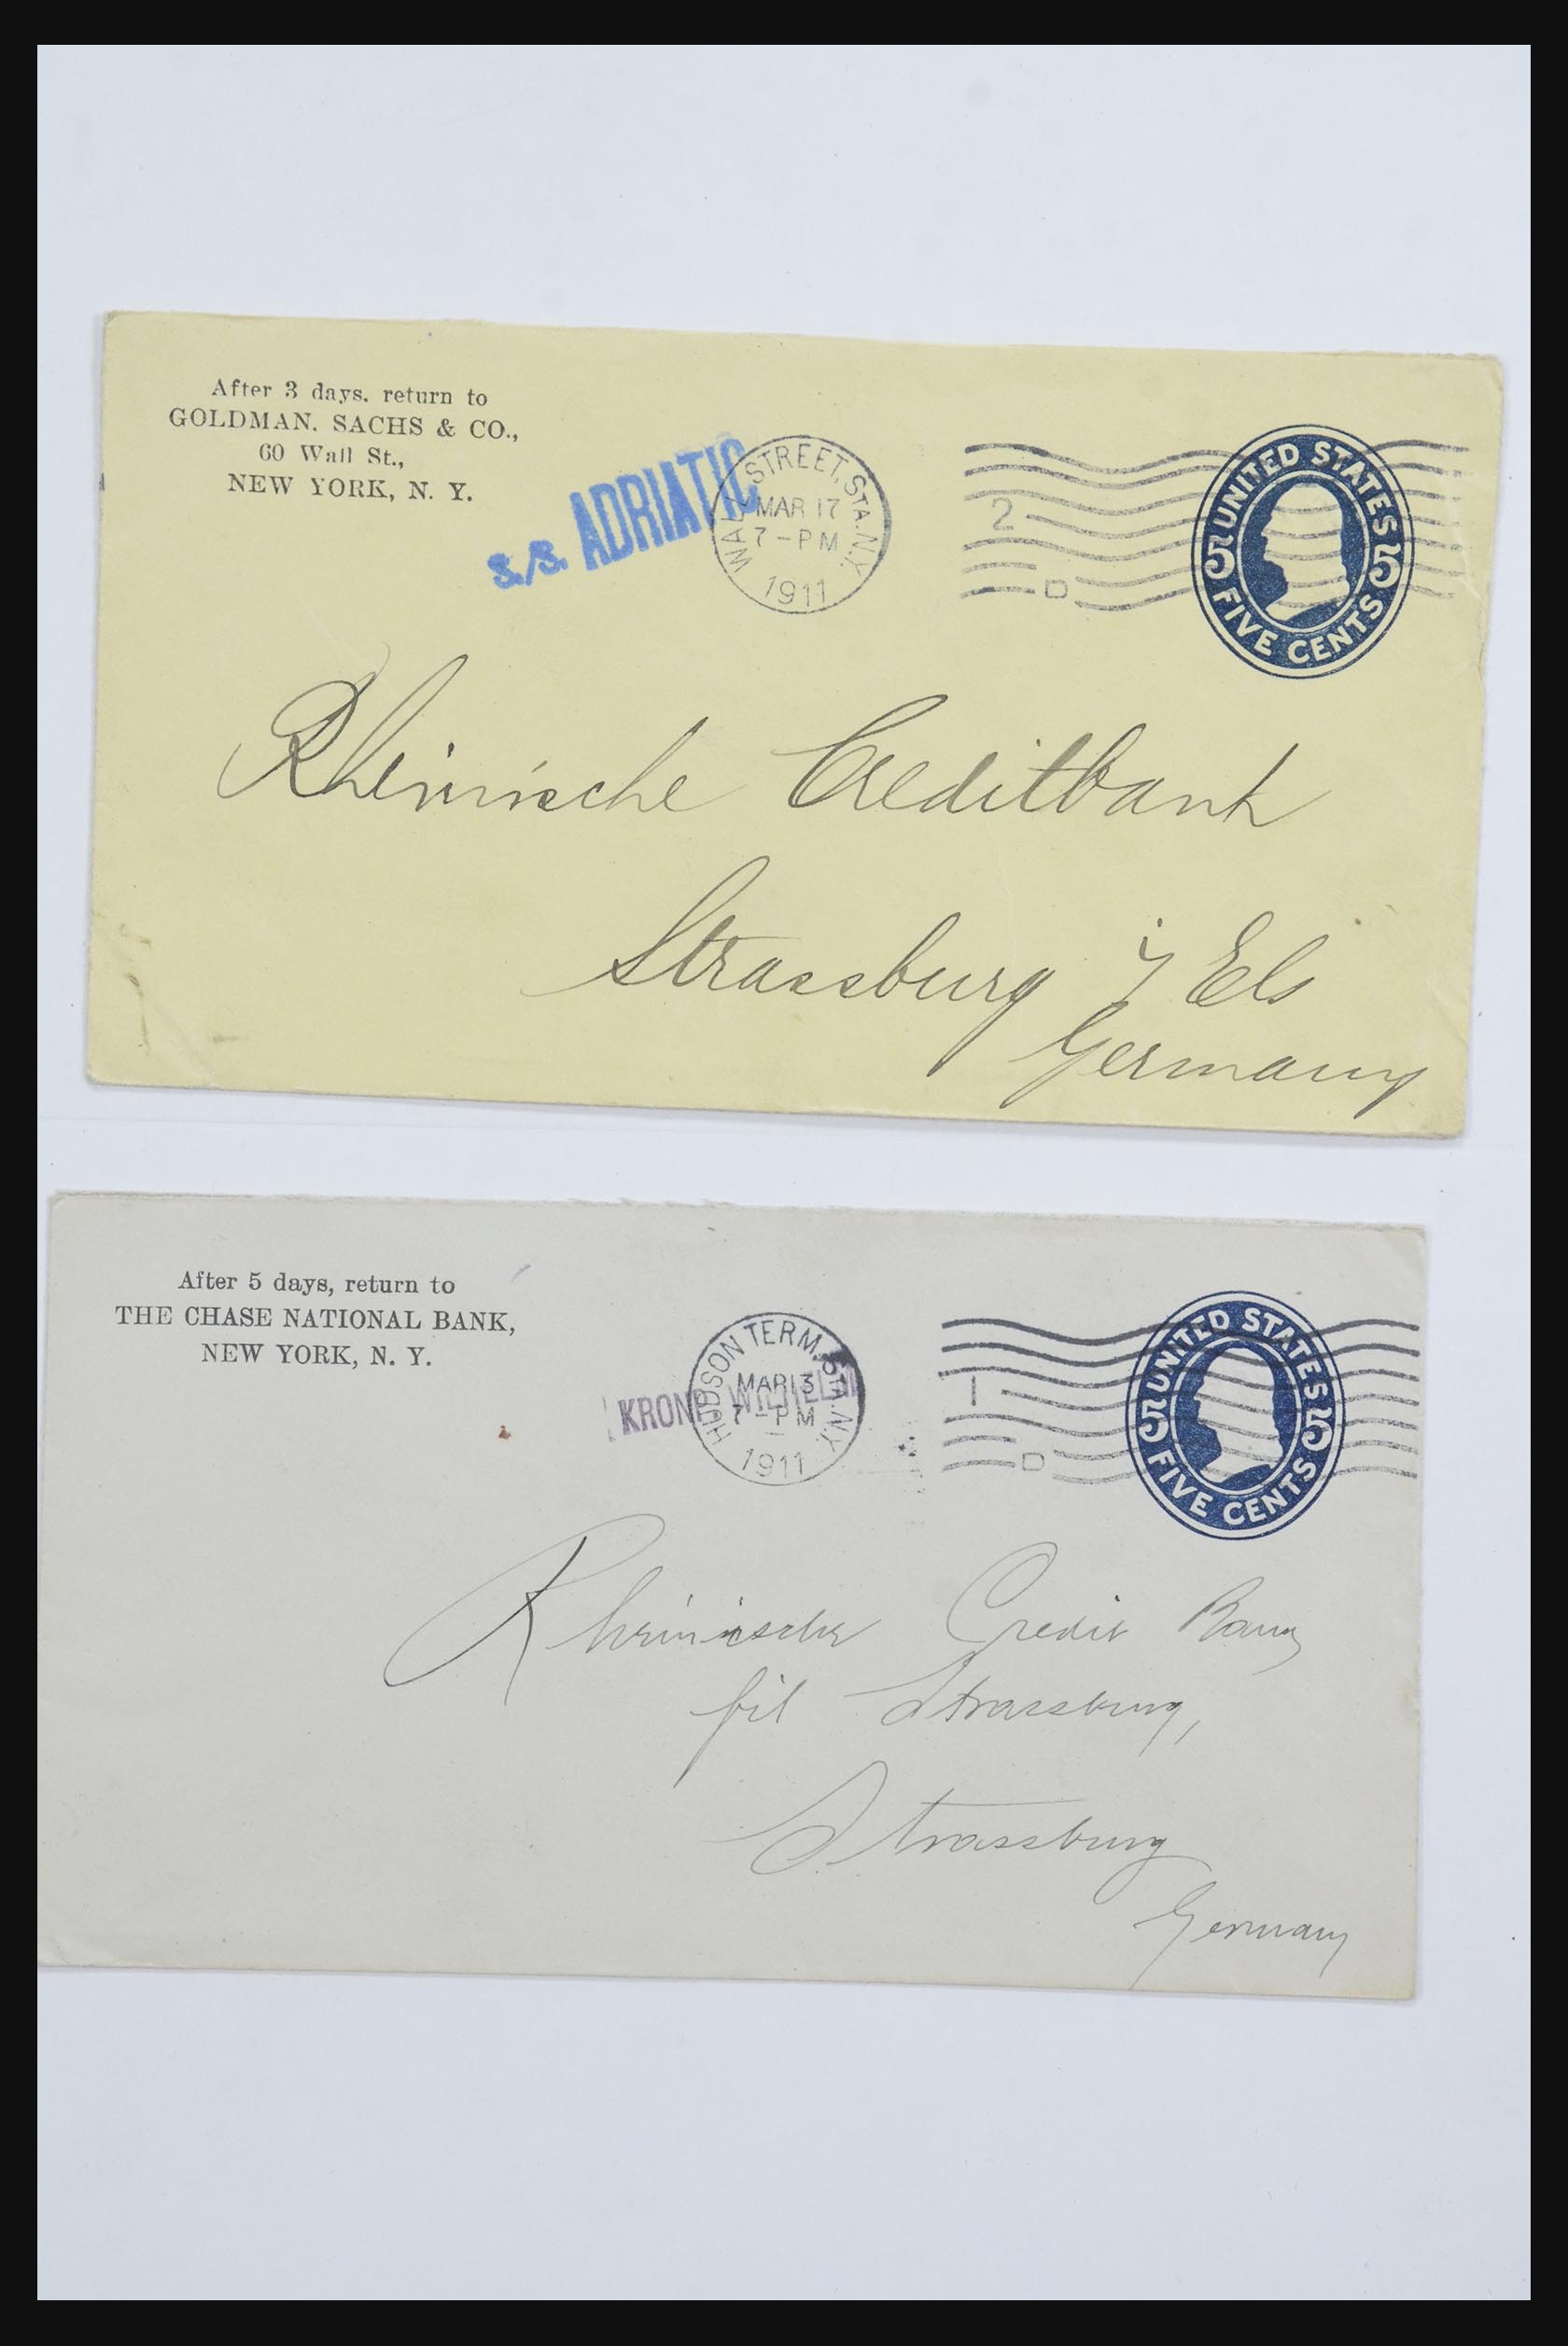 After 3 days. return to
GOLDMAN. SACHS & CO.,
60 Wall St.,
NEW YORK, N. Y.
S.S. ADRIATIC
WALL STREET, STA. N.Y.
MAR 17
7-PM
1911
2
D
UNITED STATES
5 5
FIVE CENTS
Rheinische Creditbank
Strassburg i/ Els
Germany
After 5 days, return to
THE CHASE NATIONAL BANK,
NEW YORK, N. Y.
KRONP. WILHELM
HUDSON TERM. STA. N.Y.
MAR 13
7-PM
1911
1
D
UNITED STATES
5 5
FIVE CENTS
Rheinische Credit Bank
fil Strassburg,
Strassburg
Germany